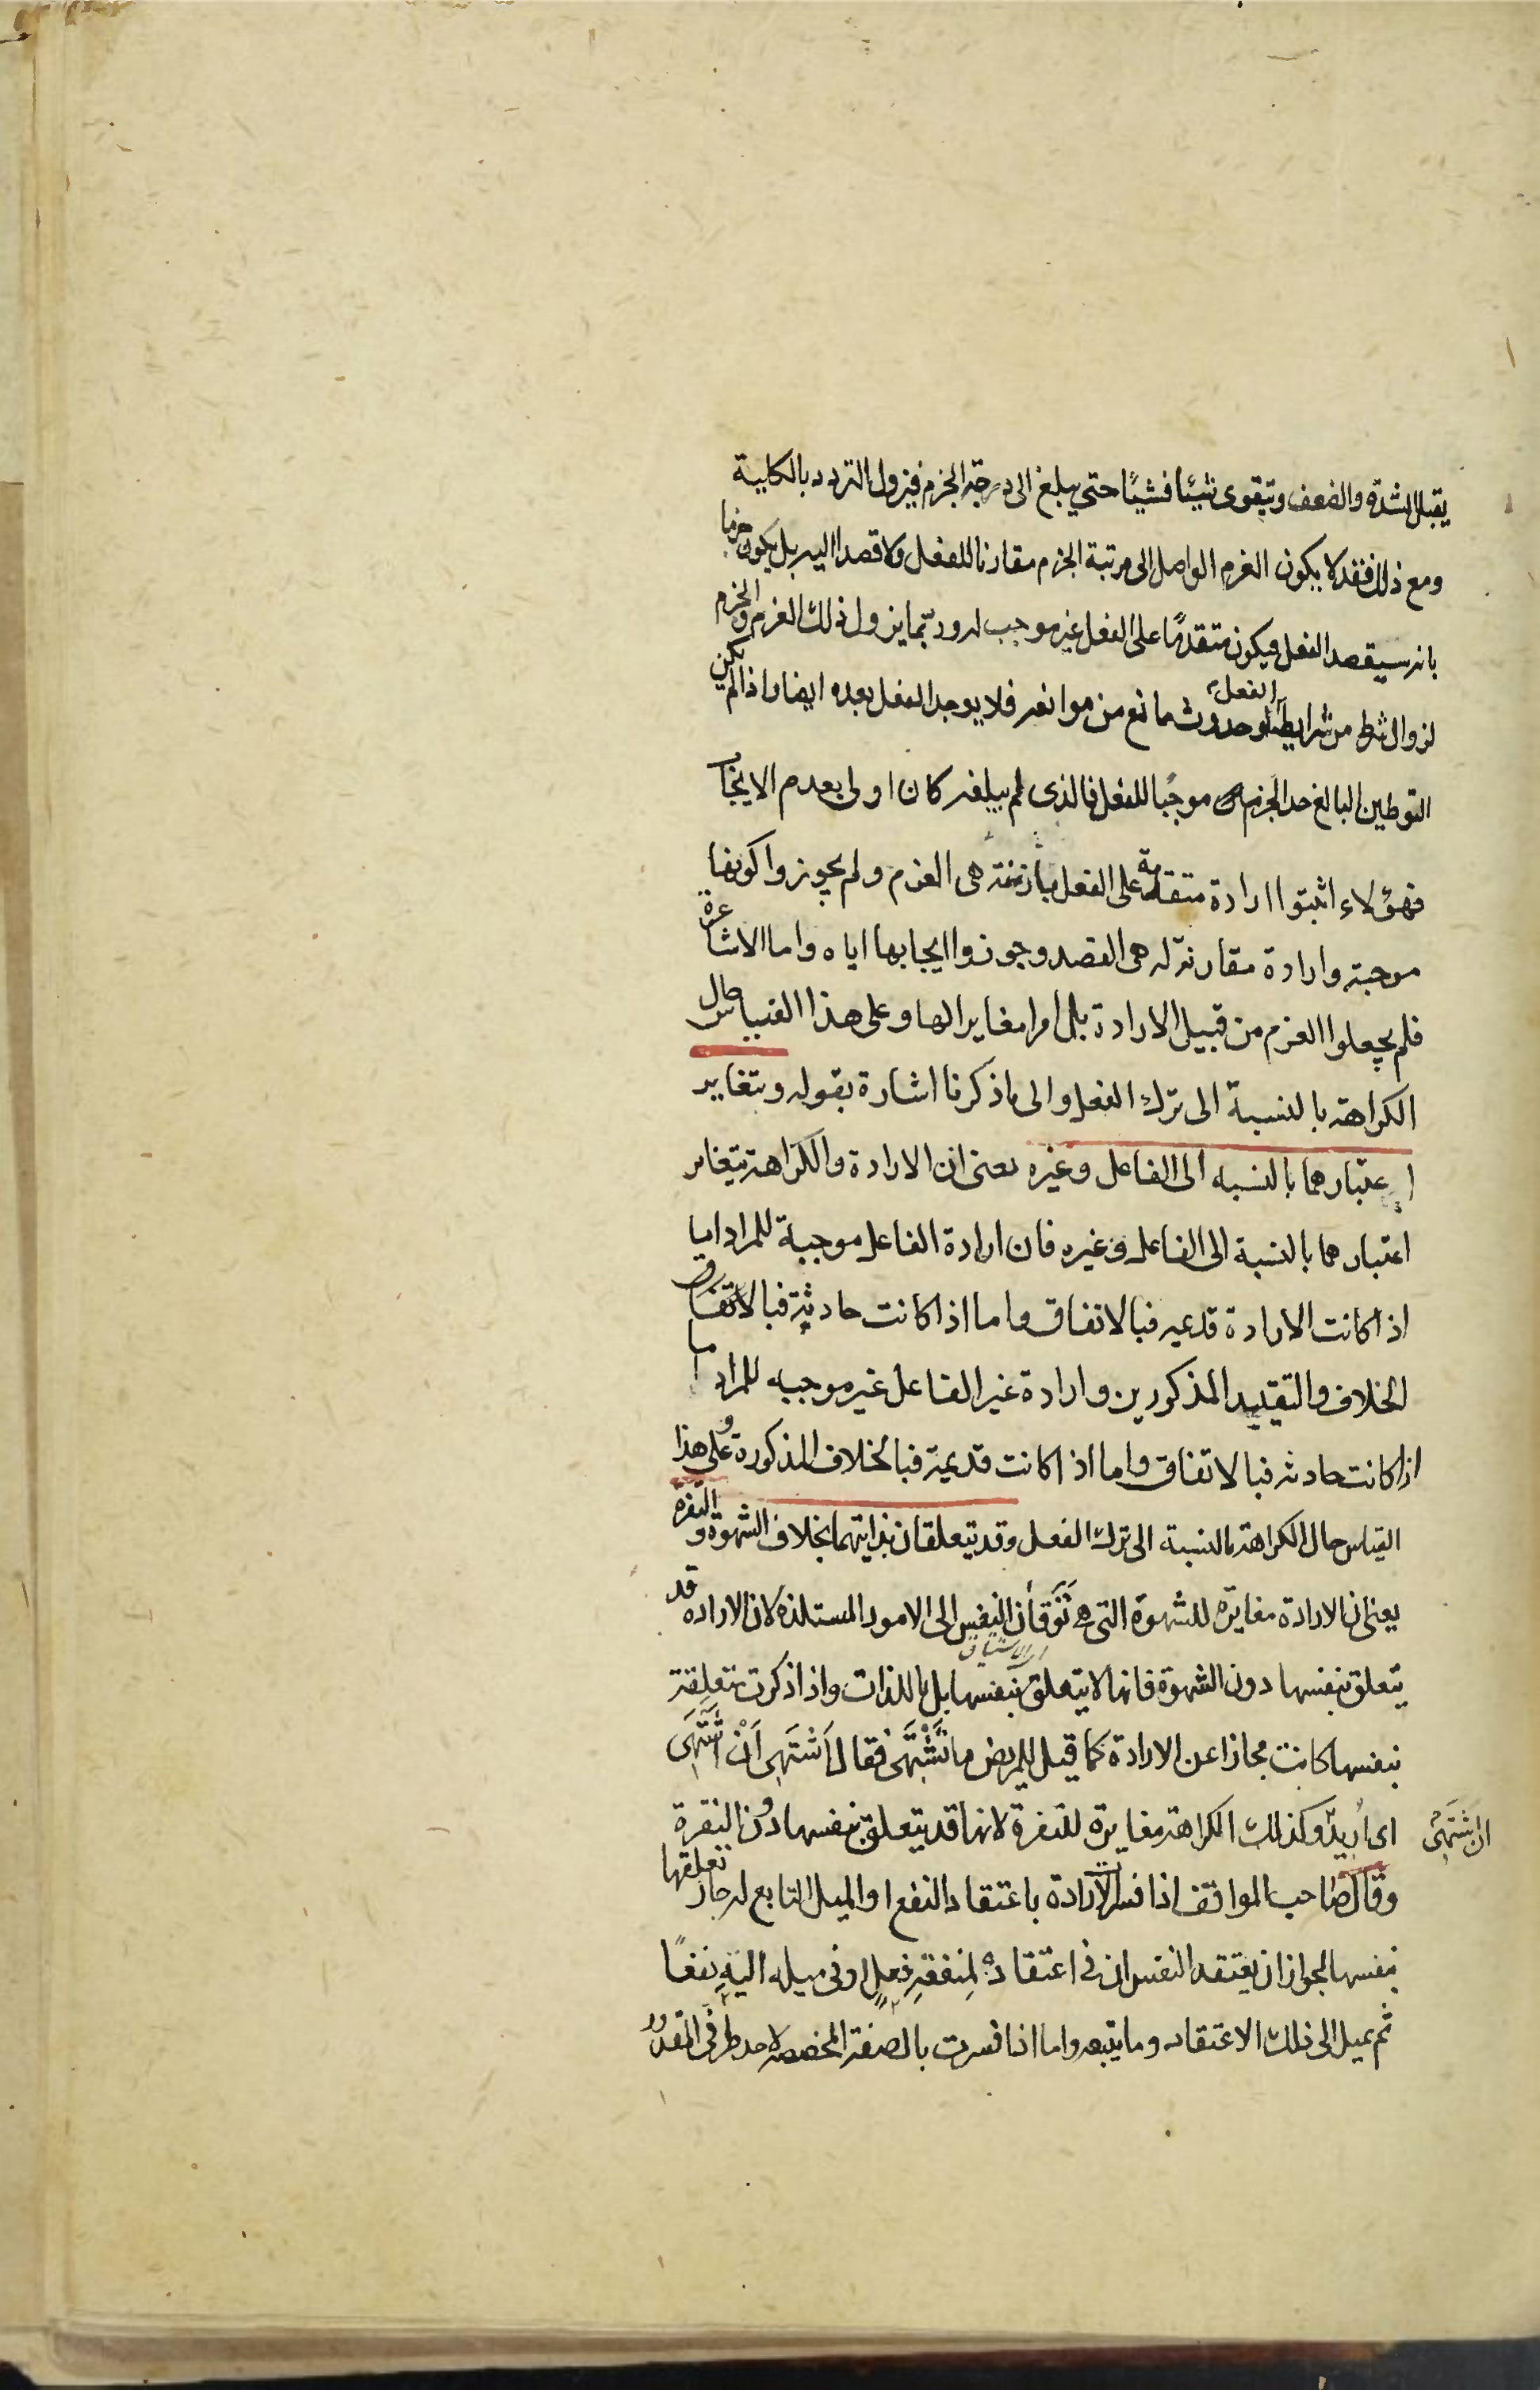 يقبل الشدة والضعف ويتقوى شيئا فشيئا حتى يبلغ الى درجة الجزم فيزول التردد بالكلية
ومع ذلك فقد لا يكون العزم الواصل الى مرتبة الجزم مقارنا للفعل ولا قصدا اليه بل يكون جزما
بانه سيقصد الفعل فيكون متقدمًا على الفعل غير موجب له وربّما يزول ذلك العزم والجزم
لزوال شرط من شرايط الفعل او حدوث مانع من موانعه فلا يوجد الفعل بعده ايضا واذا لم يكن
التوطين البالغ حد الجزم موجبا للفعل فالذى لم يبلغه كان اولى بعدم الايجاب
فهؤلاء اثبتوا ارادة متقدمة على الفعل بازمنة هى العزم ولم يجوزوا كونها
موجبة وارادة مقارنة له هى القصد وجوزوا ايجابها اياه واما الاشاعرة
فلم يجعلوا العزم من قبيل الارادة بل امرا مغايرا لها وعلى هذا القياس حال
الكراهة بالنسبة الى ترك الفعل والى ما ذكرنا اشارة بقوله ويتغاير
اعتبارهما بالنسبه الى الفاعل وغيره يعنى ان الارادة والكراهة يتغاير
اعتبارهما بالنسبة الى الفاعل وغيره فان ارادة الفاعل موجبة للمراد اما
اذا كانت الارادة قديمه فبالاتفاق واما اذا كانت حادثة فبالاتفاق
الخلاف والتقييد المذكورين وارادة غير الفاعل غير موجبه للمراد اما
اذا كانت حادثه فبالاتفاق واما اذا كانت قديمة فبالخلاف المذكورة وعلى هذا
القياس حال الكراهة بالنسبة الى ترك الفعل وقد يتعلقان بذاتيهما بخلاف الشهوة والنفرة
يعنى ان الارادة مغايرة للشهوة التى هى تَوَقَان النفس الى الامور المستلذه لان الاراده قد
اى الاشتياق
يتعلق بنفسها دون الشهوة فانها لا يتعلق بنفسها بل باللذات واذا ذكرت متعلقة
بنفسها كانت مجازا عن الارادة كما قيل للمريض ما تَشْتَهَى فقال اَشْتَهِى اَنْ اَشْتَهَى
ان اشتهى
اى اُريدُ وكذلك الكراهة مغايرة للنفرة لانها قد يتعلق بنفسها دون النفرة
وقال صاحب المواقف اذا فسر الارادة باعتقاد النفع او الميل التابع له جاز تعلقها
بنفسها لجواز ان يعتقد النفس ان فى اعتقاده لمنفقة فعلٍ او فى ميله اليه نفعًا
ثم يميل الى ذلك الاعتقاد وما يتبعه واما اذا فسرت بالصفة المخصصه لاحد طرفى المقدور